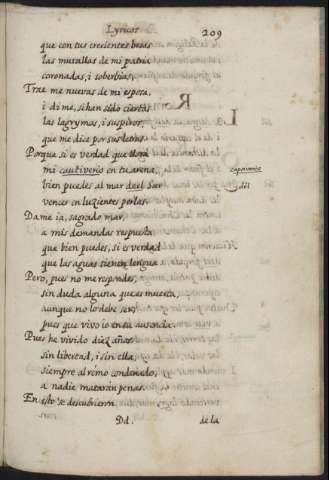 Lyricos 209
que con tus crecientes besas
las murallas de mi patria
coronadas, i soberbias,
Trae me nuevas de mi esposa,
i dime, si han sido ciertas
las lagrymas, i suspiros,
que me dice por sus letras.
Porque si es verdad que llora
mi cautiverio en tu arena,
bien puedes al mar del Sur
vences en luzientes perlas.
Da me ia, sagrado mar,
a mis demandas respuesta
que bien puedes, si es verdad
que las aguas tienen lengua.
Pero, pues no me respondes,
sin duda alguna que es muerta,
aunque no lo debe ser,
pues que vivo io en su ausencia.
Pues he vivido diez años
sin libertad, i sin ella,
siempre al remo condenado,
a nadie mataràn penas.
En esto se descubrieron
Dd. de la